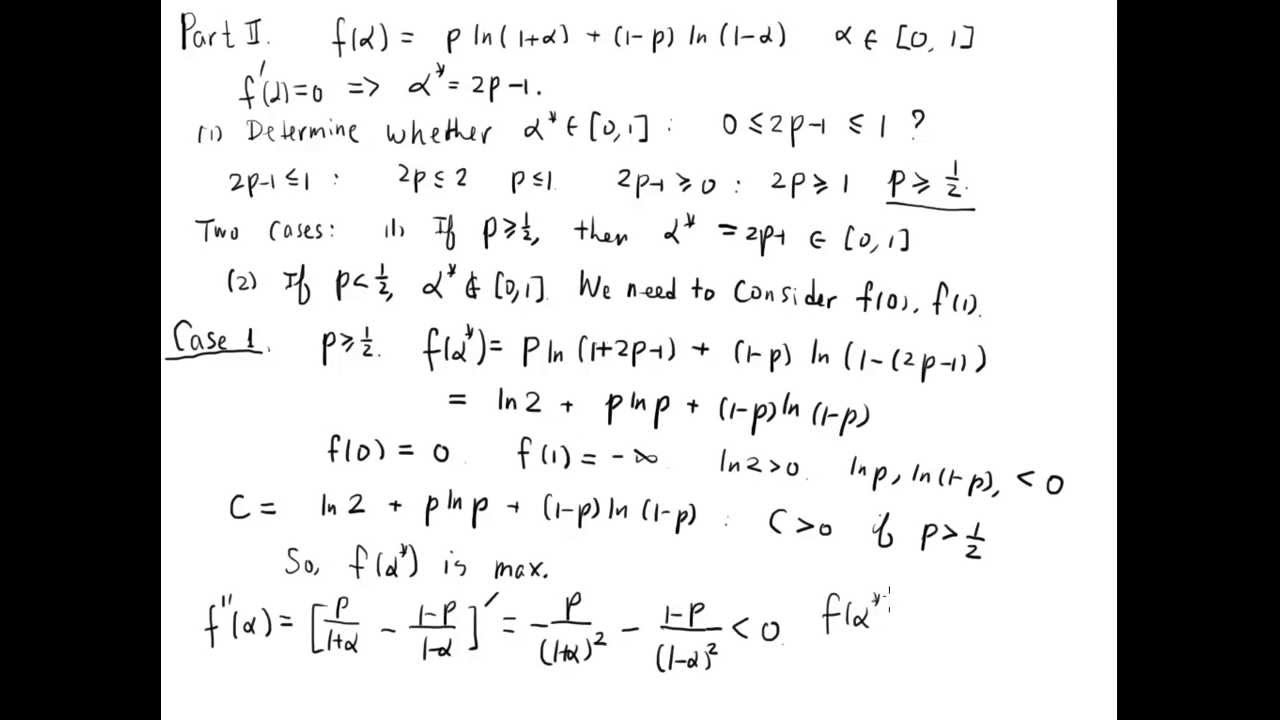 Part II. f(α) = p ln(1+α) + (1-p) ln(1-α) α ∈ [0, 1]
f'(α)=0 => α* = 2p-1.
(1) Determine whether α* ∈ [0,1] : 0 ≤ 2p-1 ≤ 1 ?
2p-1 ≤ 1 : 2p ≤ 2 p ≤ 1. 2p-1 ≥ 0 : 2p ≥ 1 p ≥ 1/2.
Two cases: (1) If p ≥ 1/2, then α* = 2p-1 ∈ [0,1]
(2) If p < 1/2, α* ∉ [0,1]. We need to consider f(0), f(1).
Case 1. p ≥ 1/2. f(α*) = p ln (1+2p-1) + (1-p) ln (1-(2p-1))
= ln 2 + p ln p + (1-p) ln (1-p)
f(0) = 0. f(1) = -∞ ln 2 > 0. ln p, ln(1-p), < 0
C = ln 2 + p ln p + (1-p) ln (1-p) : C > 0 if p > 1/2
So, f(α*) is max.
f''(α) = [p/(1+α) - (1-p)/(1-α)]' = - p/(1+α)² - (1-p)/(1-α)² < 0. f(α*